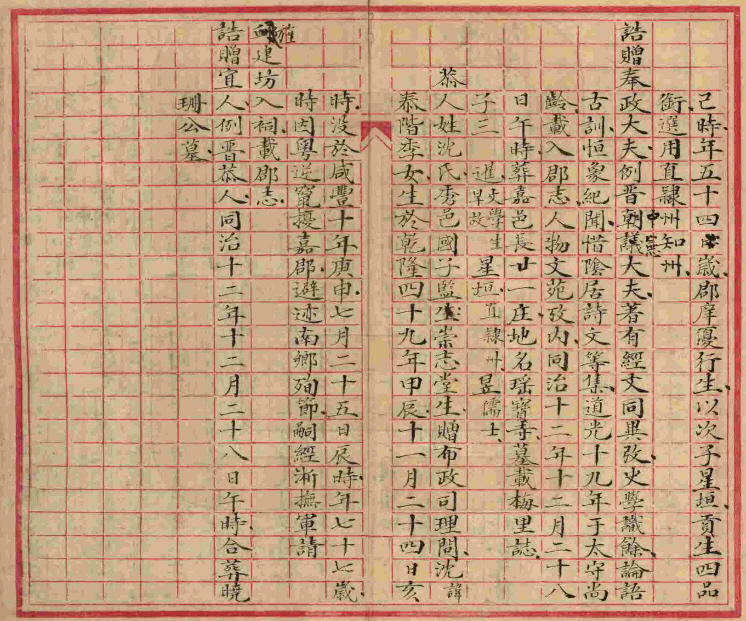 己時年五十四歲郡庠優行生以次子星垣貢生四品
銜選用直隸州知州
誥贈奉政大夫例晉朝議大夫著有經文同異攷史學識餘論語
古訓恒象紀聞惜陰居詩文等集道光十九年于太守尚
齡載入郡志人物文苑攷內同治十二年十二月二十八
日午時葬嘉邑長廿一庄地名瑤寶寺墓載梅里誌
子三 暹文學生早故 星垣直隸州 昱儒士
恭人姓沈氏秀邑國子監生崇志堂生贈布政司理問沈諱
泰階季女生於乾隆四十九年甲辰十一月二十四日亥
時沒於咸豐十年庚申七月二十五日辰時年七十七歲
時因粵逆竄擾嘉郡避迹南鄉殉節嗣經浙撫軍請
旌建坊入祠載郡志
誥贈宜人例晉恭人同治十二年十二月二十八日午時合葬曉
珊公墓